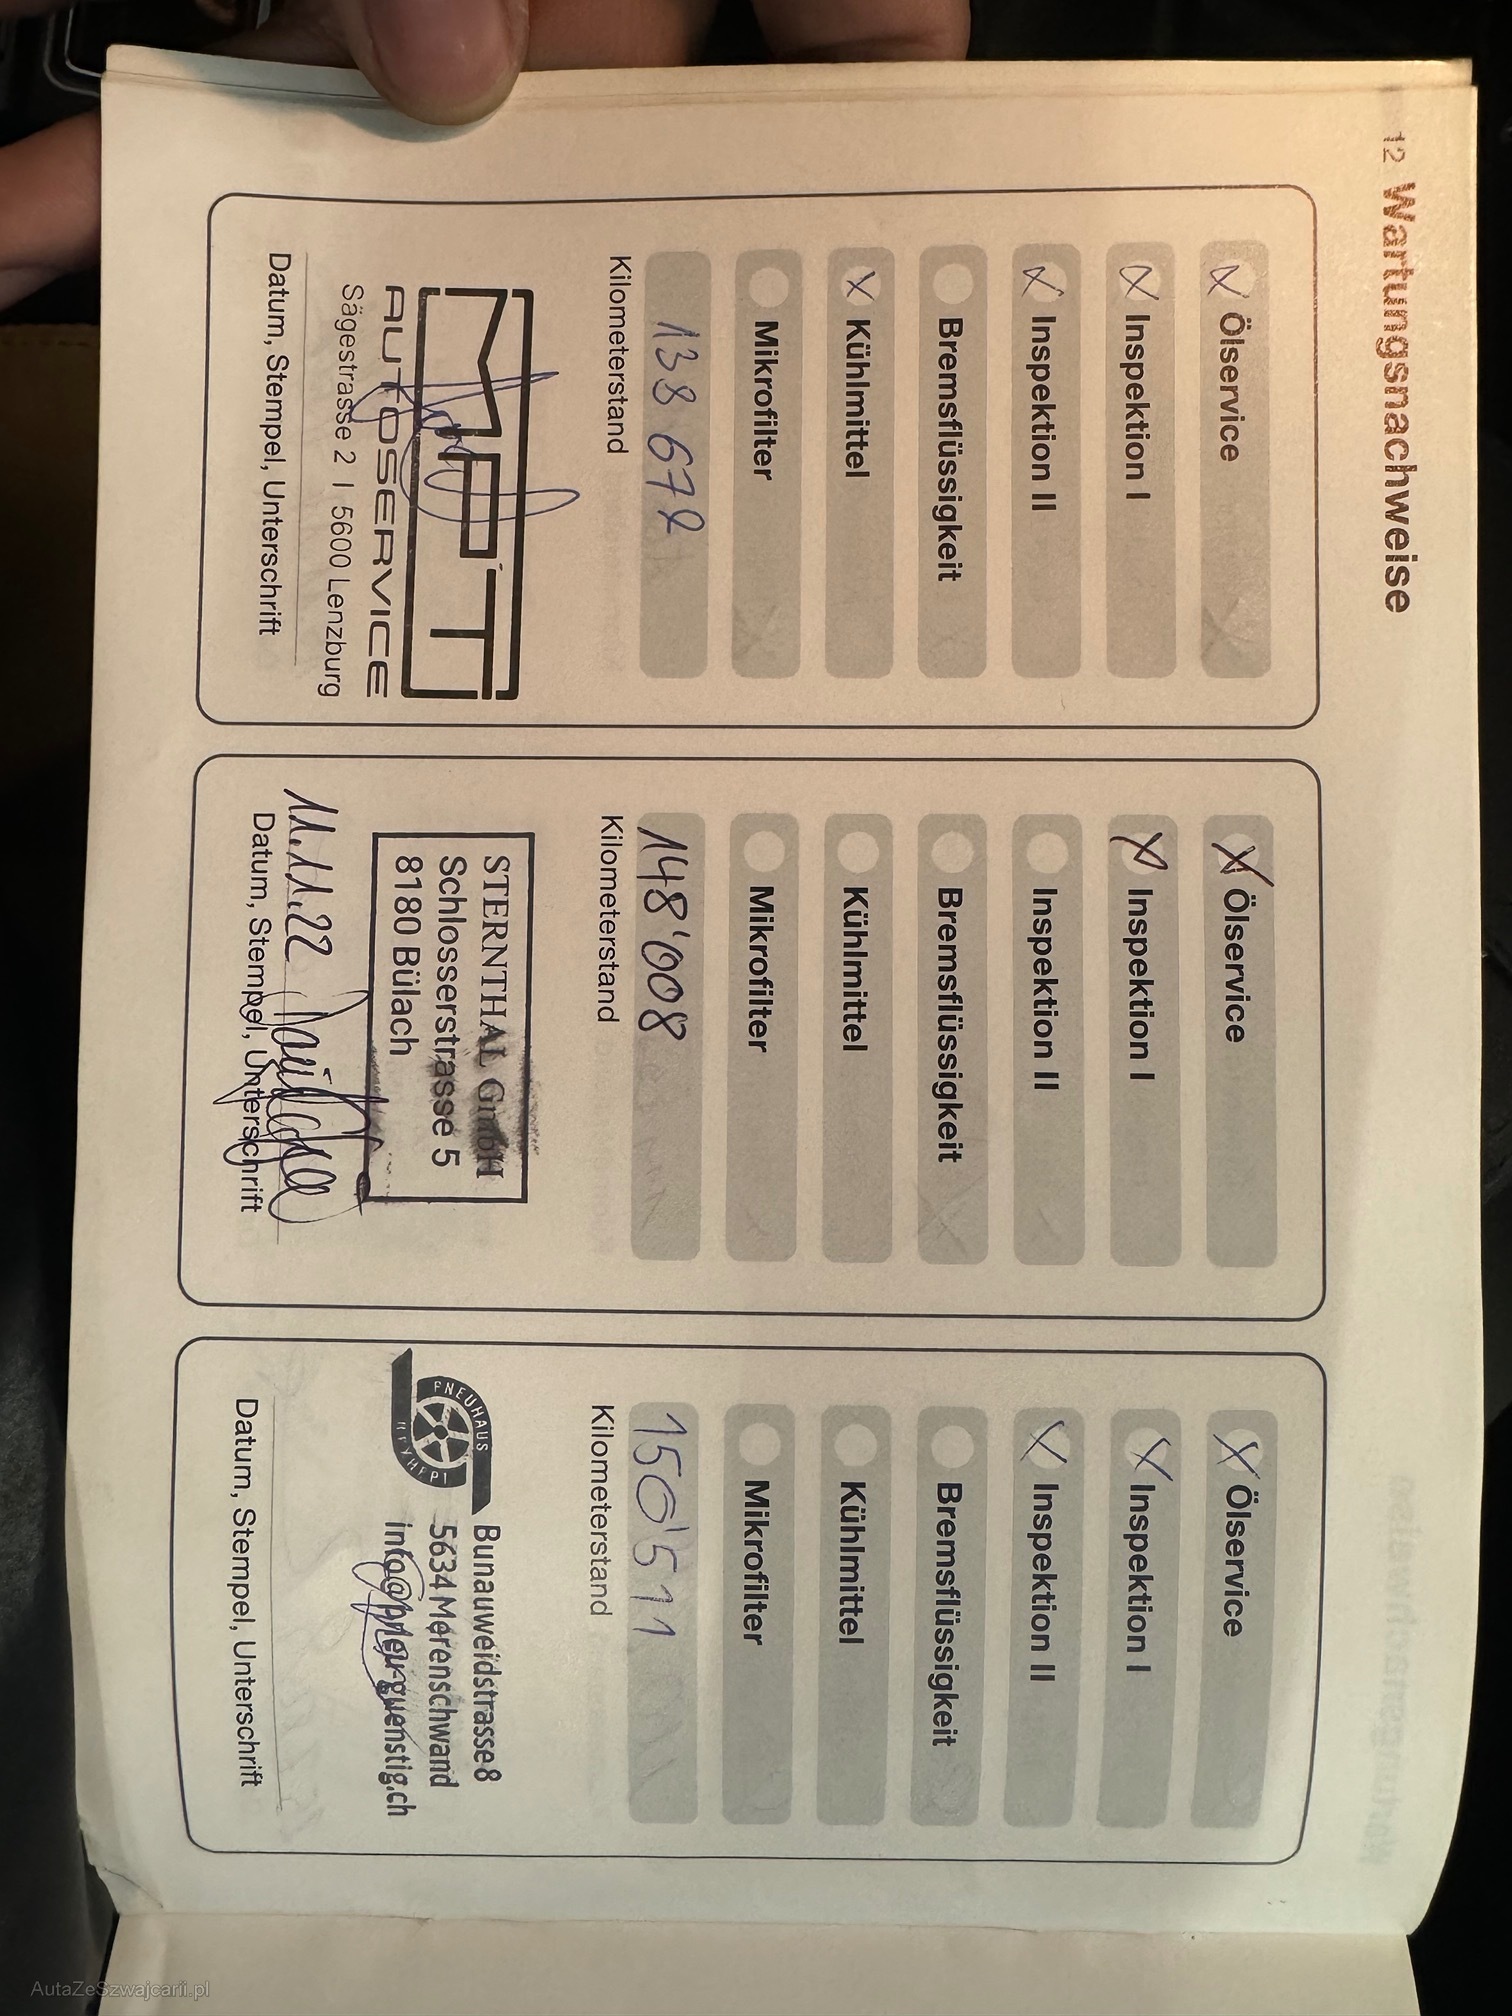 12 Wartungsnachweise
X Ölservice
X Inspektion I
X Inspektion II
Bremsflüssigkeit
X Kühlmittel
Mikrofilter
138 678
Kilometerstand
AUTOSERVICE
Sägestrasse 2 I 5600 Lenzburg
Datum, Stempel, Unterschrift
X Ölservice
X Inspektion I
Inspektion II
Bremsflüssigkeit
Kühlmittel
Mikrofilter
148'008
Kilometerstand
STERNTHAL GmbH
Schlosserstrasse 5
8180 Bülach
11.11.22
Datum, Stempel, Unterschrift
X Ölservice
X Inspektion I
X Inspektion II
Bremsflüssigkeit
Kühlmittel
Mikrofilter
150'511
Kilometerstand
PNEUHAUS
Bunauweidstrasse 8
5634 Merenschwand
info@pneu-guenstig.ch
Datum, Stempel, Unterschrift
AutaZeSzwajcarii.pl